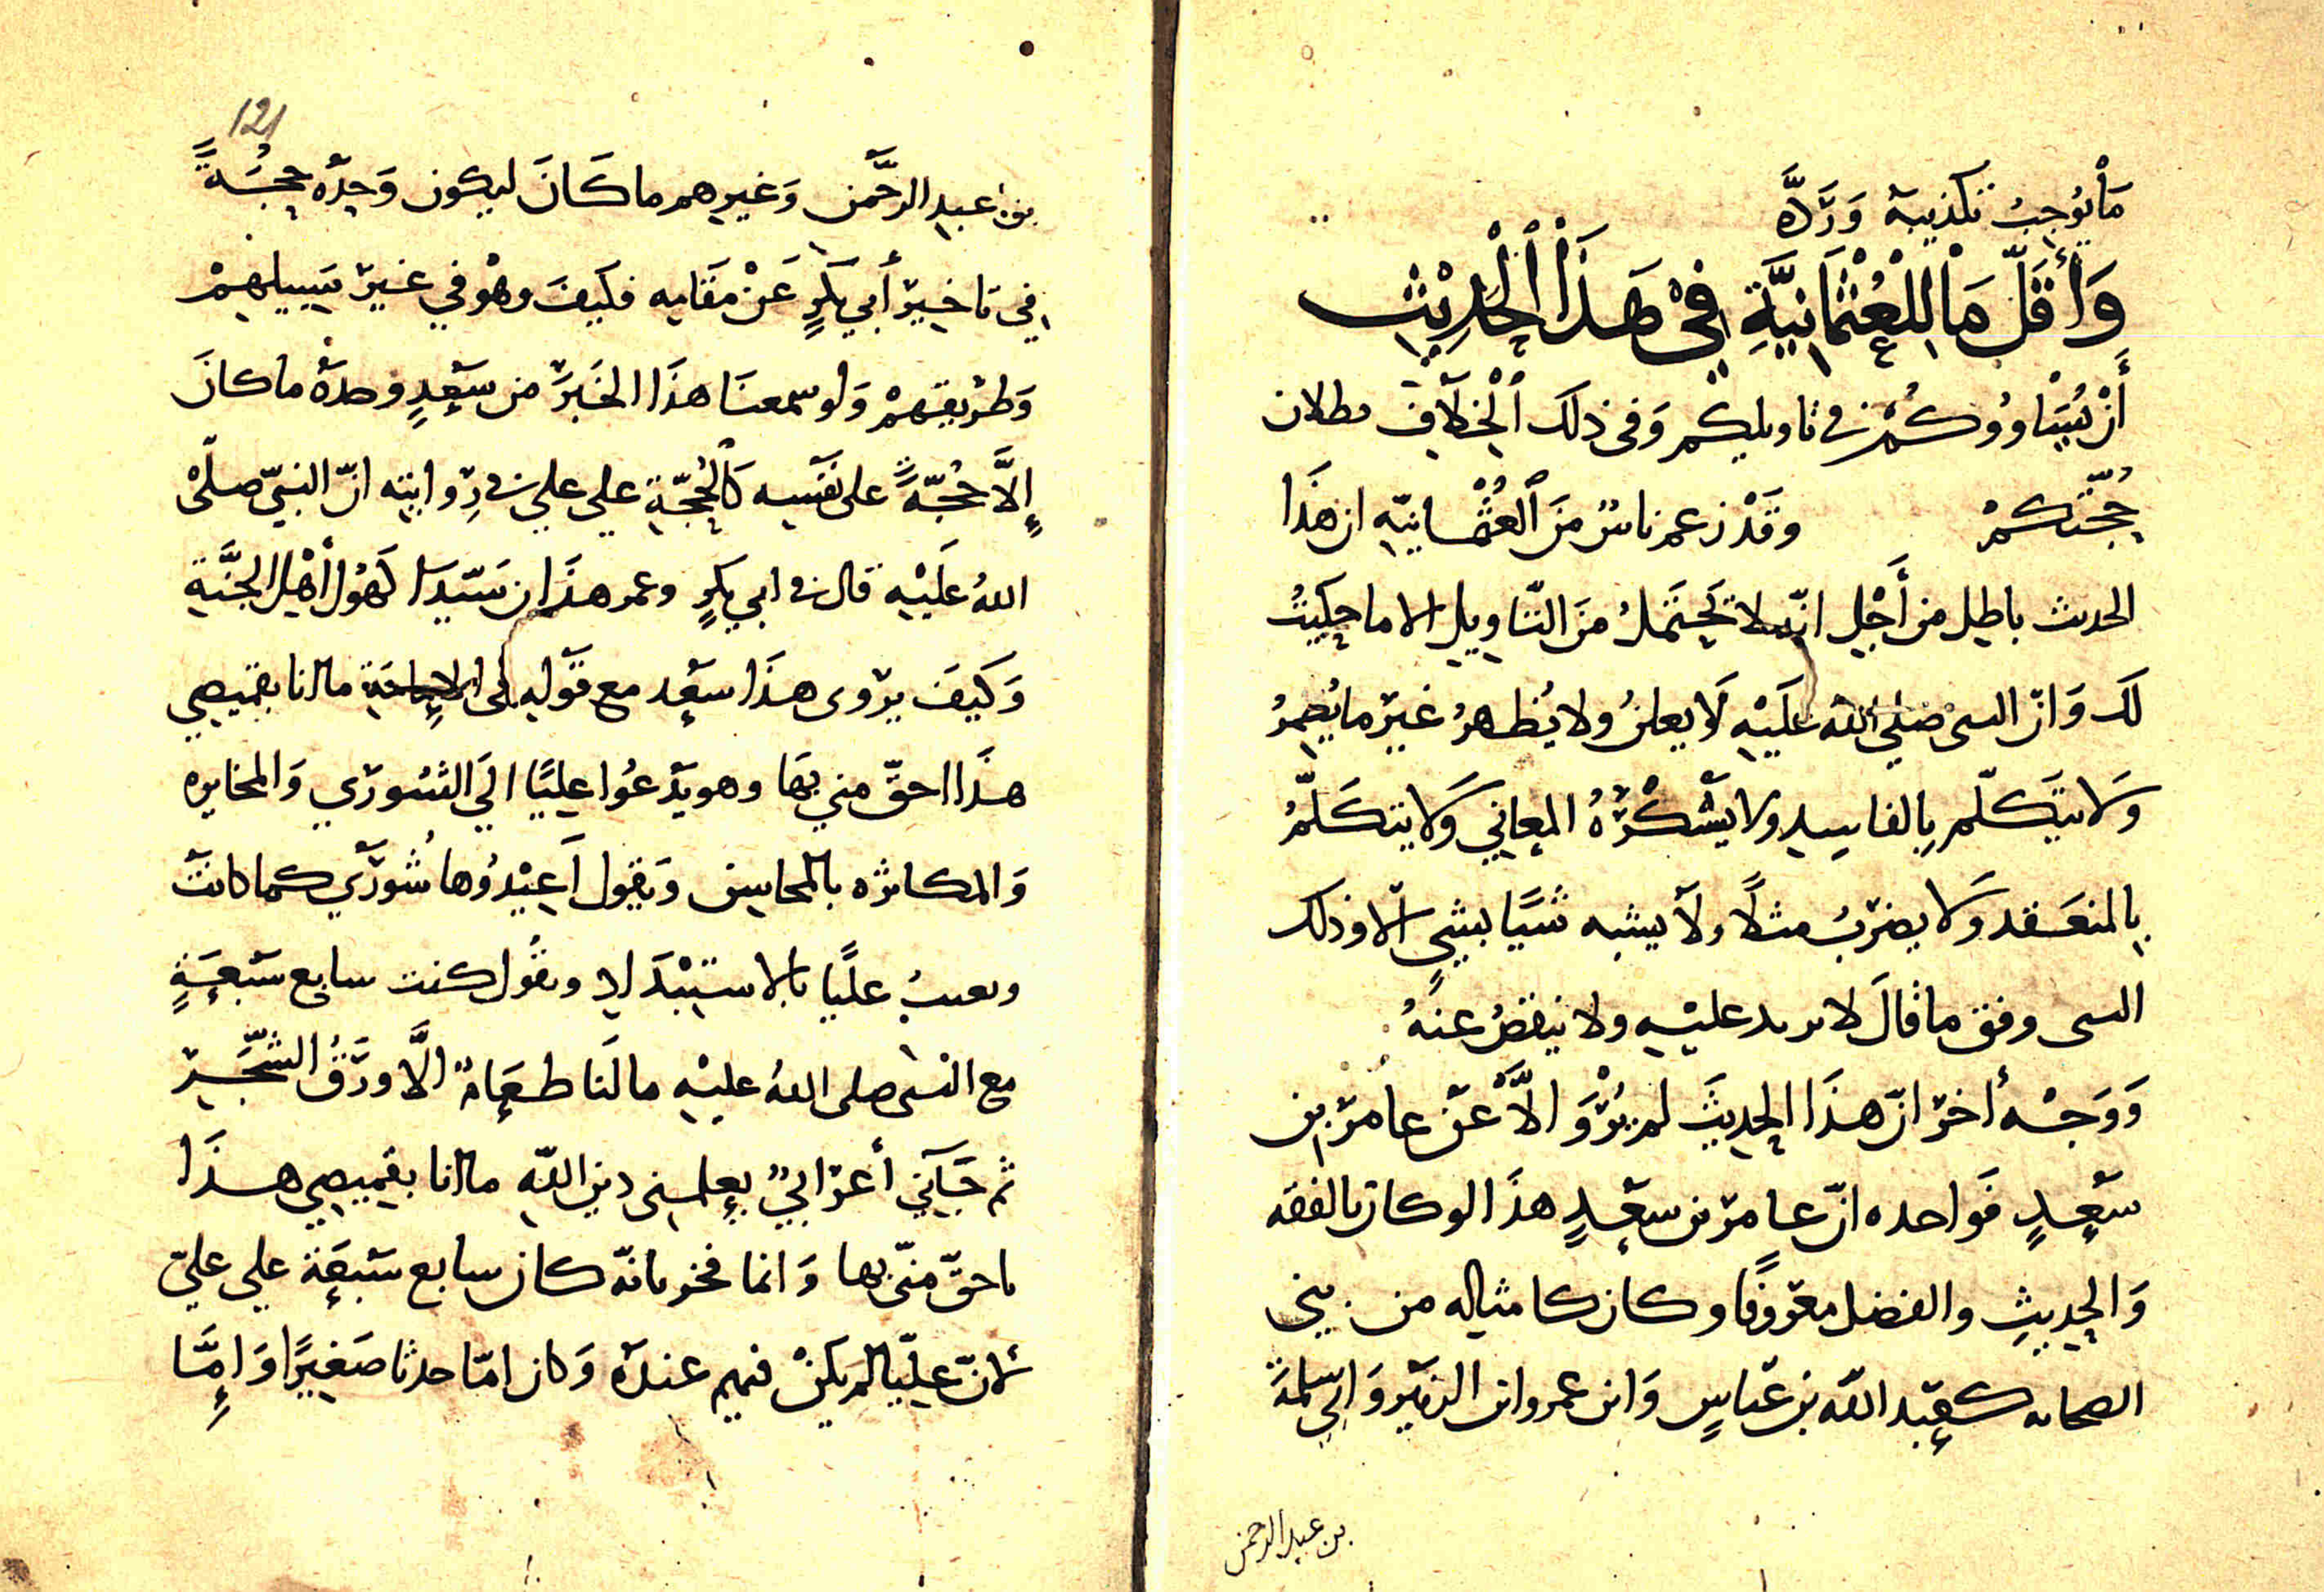 مَا يُوجِبُ تكذيبه وَرَدَّه
وَأَقَلّ مَا لِلْعُثْمَانِيَّةِ فِي هَذَا الْحَدِيْثِ
أَنْ يُسَاوُوكُمْ في تاويلكم وَفي ذلك الْخِلَافِ بطلان
حُجّتكمْ وقَدْ زعم ناسٌ مِنَ الْعُثْمَانيّه ان هذَا
الحديث باطل من أَجْلِ انّه لا يَحتَملُ مِنَ التّاويل الا ما حكيتُ
لَكَ وَانّ النبي صَلى اللهُ عَلَيْهِ لَا يعلنُ ولا يُظهرُ غيرَ ما يُضمرُ
وَلا يتَكلّم بِالفاسِدِ ولا يَسْتكْرَهُ المعاني وَلا يتكلّمُ
بِالمنعَقد وَلا يضربُ مثلًا ولا يشبه شَيًا بشيٍ الا وذلك
الشى وفق ما قالَ لا يزيد عليْهِ ولا ينقصُ عنهُ
وَوَجْه أخر انّ هذَا الحديثَ لم يُرْوَ الَّا عَنْ عامر بن
سَعْدٍ فَواحده انّ عامر بن سَعْدٍ هذَا لو كان بالفقه
وَالحديثِ والفضل معروفًا وكان كامثاله من بني
الصحابه كعَبد اللّه بن عَبّاسٍ وَابن عمر وابن الزبَير وَابي سَلمَة
بن عبد الرحمن
121
بن عبد الرحَّمن وَغيرهم ما كَانَ ليكون وَحدَه حجُةً
في تاخير أبي بَكرٍ عَنْ مَقامِه فكَيفَ وهْو في غير سَبيلهِمْ
وَطريقهمْ وَلو سمعنَا هذَا الخَبَرَ من سَعْدٍ وحدَهْ ما كانَ
إلَّا حُجّةً على نفسِه كَالحُجّةِ علي علي في رِوايته انّ النبيّ صلّى
اللهُ عَلَيْهِ قال في ابي بكرٍ وعمر هذَان سَيّدَا كَهُول أهْلِ الجنَّةِ
وَكَيفَ يرْوى هذَا سَعْد مع قَوْله ما انا بقميصي
هذَا احقّ مني بهَا وهو يَدعُوا عليًا الَي الشورَي وَالمخايره
وَالمكاثره بالمحاسِن وَيقول أَعِيْدُوها شُورَي كما كانتَ
ويعيبُ عليًا بالاستبْدَاد ويقُول كنت سابع سَبعَةٍ
مع النبى صلى اللهُ عليْهِ ما لَنَا طعَامٌ الَّا ورَقُ الشّجَرِ
ثم جَآني أعرابيٌ يعلمنى دين اللّهِ ما انا بقميصِي هذَا
باحقّ منّي بها وَانما فخر بانّه كان سابع سَبعَة علي عليّ
لانّ عليًّا لم يَكنْ فيهم عندَه وَكان امّا حدثا صَغيرًا وَإِمَّا